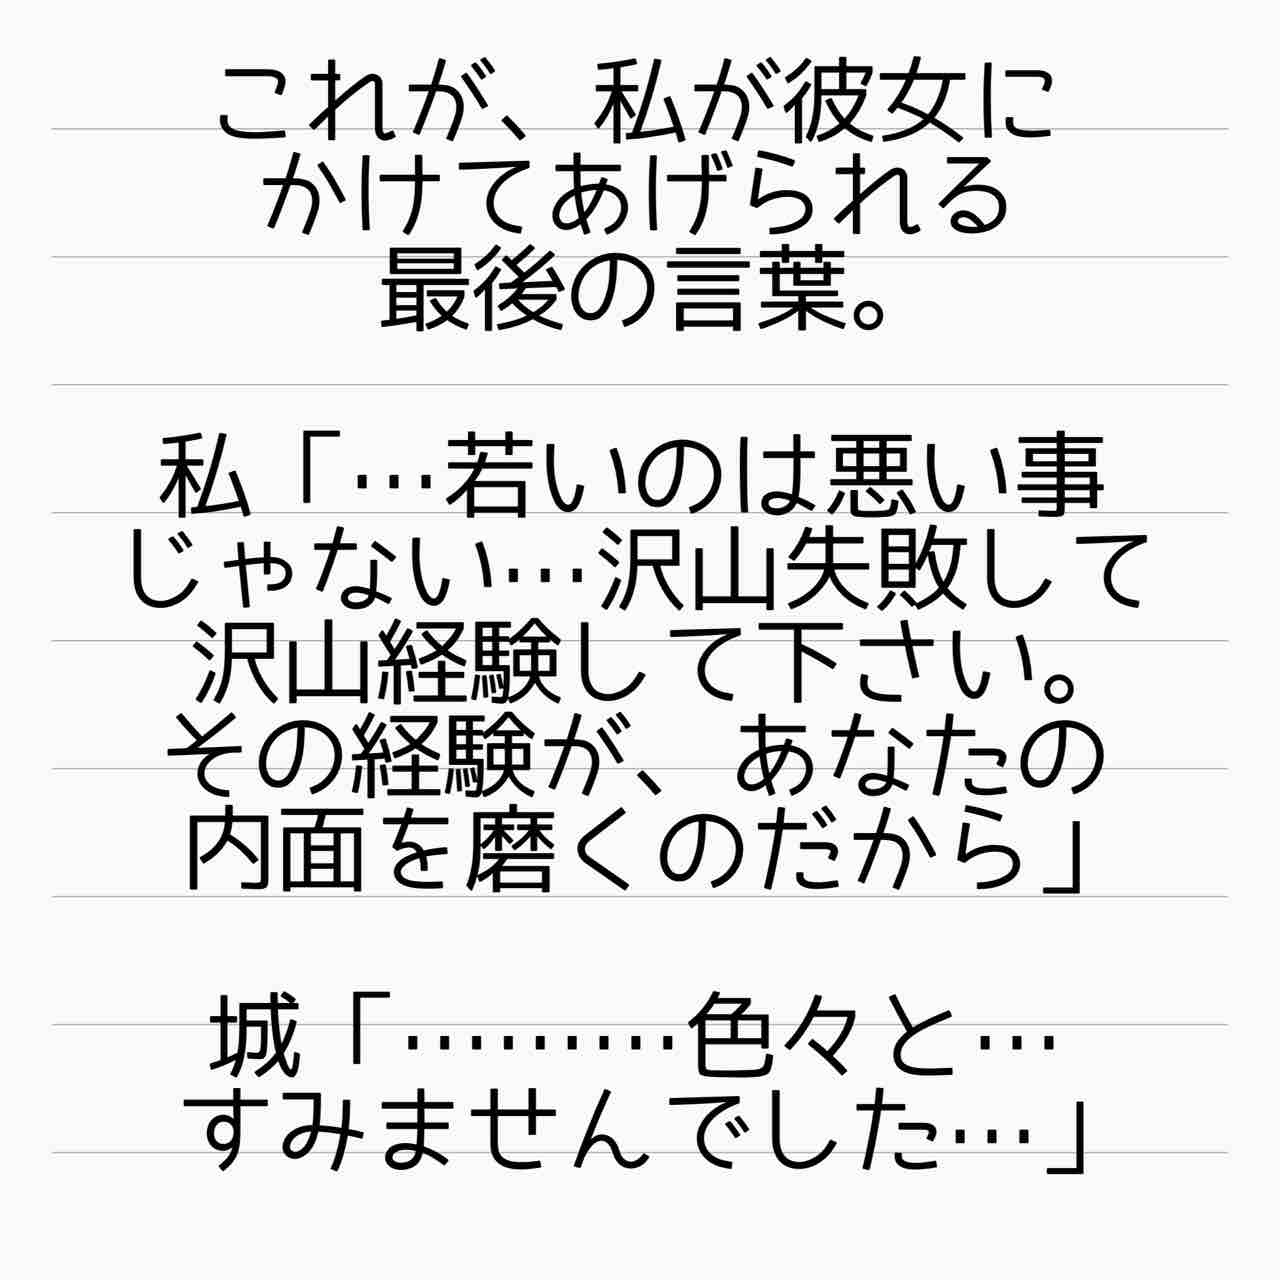 これが、私が彼女に
かけてあげられる
最後の言葉。
私「…若いのは悪い事
じゃない…沢山失敗して
沢山経験して下さい。
その経験が、あなたの
内面を磨くのだから」
城「………色々と…
すみませんでした…」